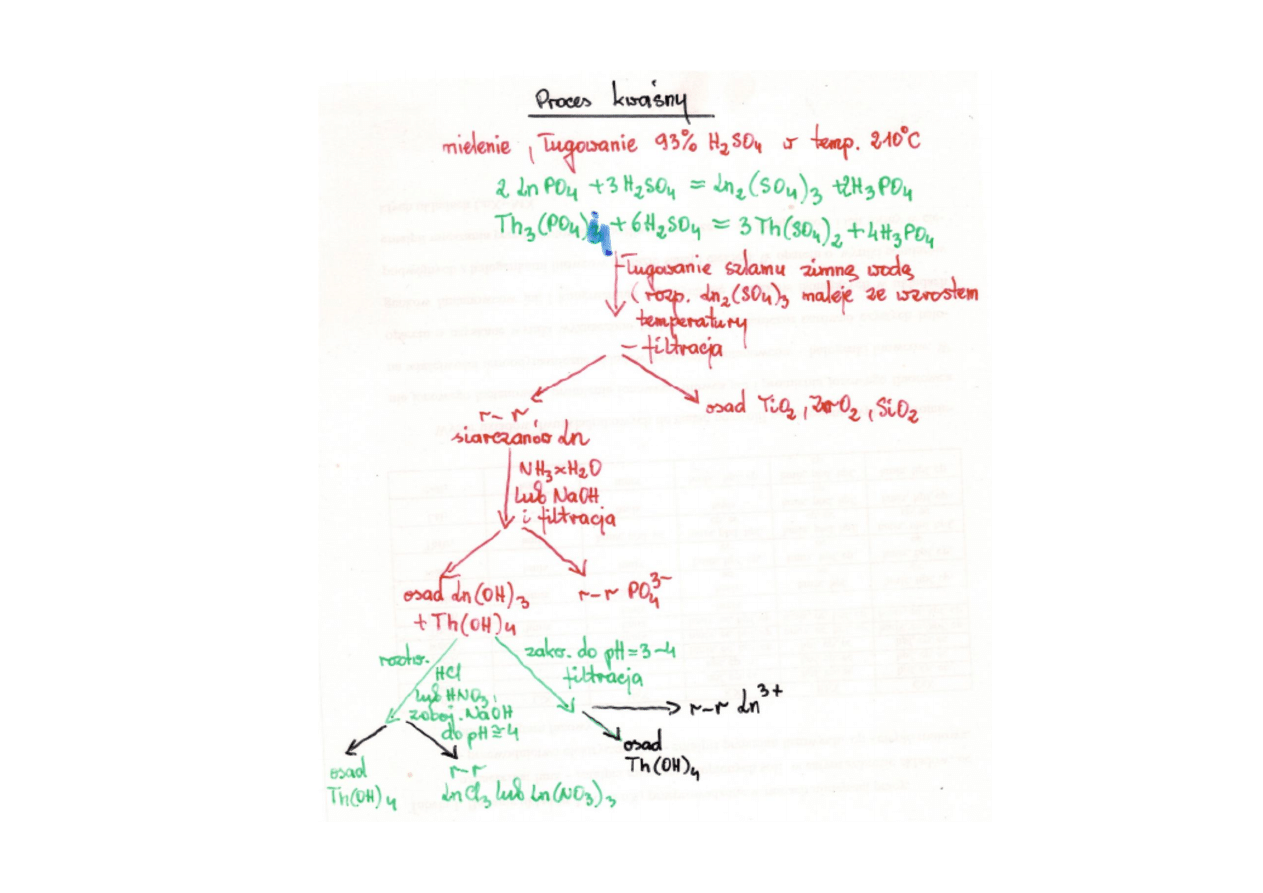 Proces kwaśny
mielenie, ługowanie 93% H₂SO₄ w temp. 210°C
2 LnPO₄ + 3H₂SO₄ = Ln₂(SO₄)₃ + 2H₃PO₄
Th₃(PO₄)₄ + 6H₂SO₄ = 3Th(SO₄)₂ + 4H₃PO₄
- ługowanie szlamu zimną wodą
(rozp. Ln₂(SO₄)₃ maleje ze wzrostem
temperatury
- filtracja
osad TiO₂, ZrO₂, SiO₂
r-r
siarczanów Ln
NH₃×H₂O
lub NaOH
i filtracja
osad Ln(OH)₃
+ Th(OH)₄
r-r PO₄³⁻
roztw.
HCl
lub HNO₃,
zoboj. NaOH
do pH≅4
zakw. do pH=3-4
filtracja
r-r Ln³⁺
osad
Th(OH)₄
osad
Th(OH)₄
r-r
LnCl₃ lub Ln(NO₃)₃